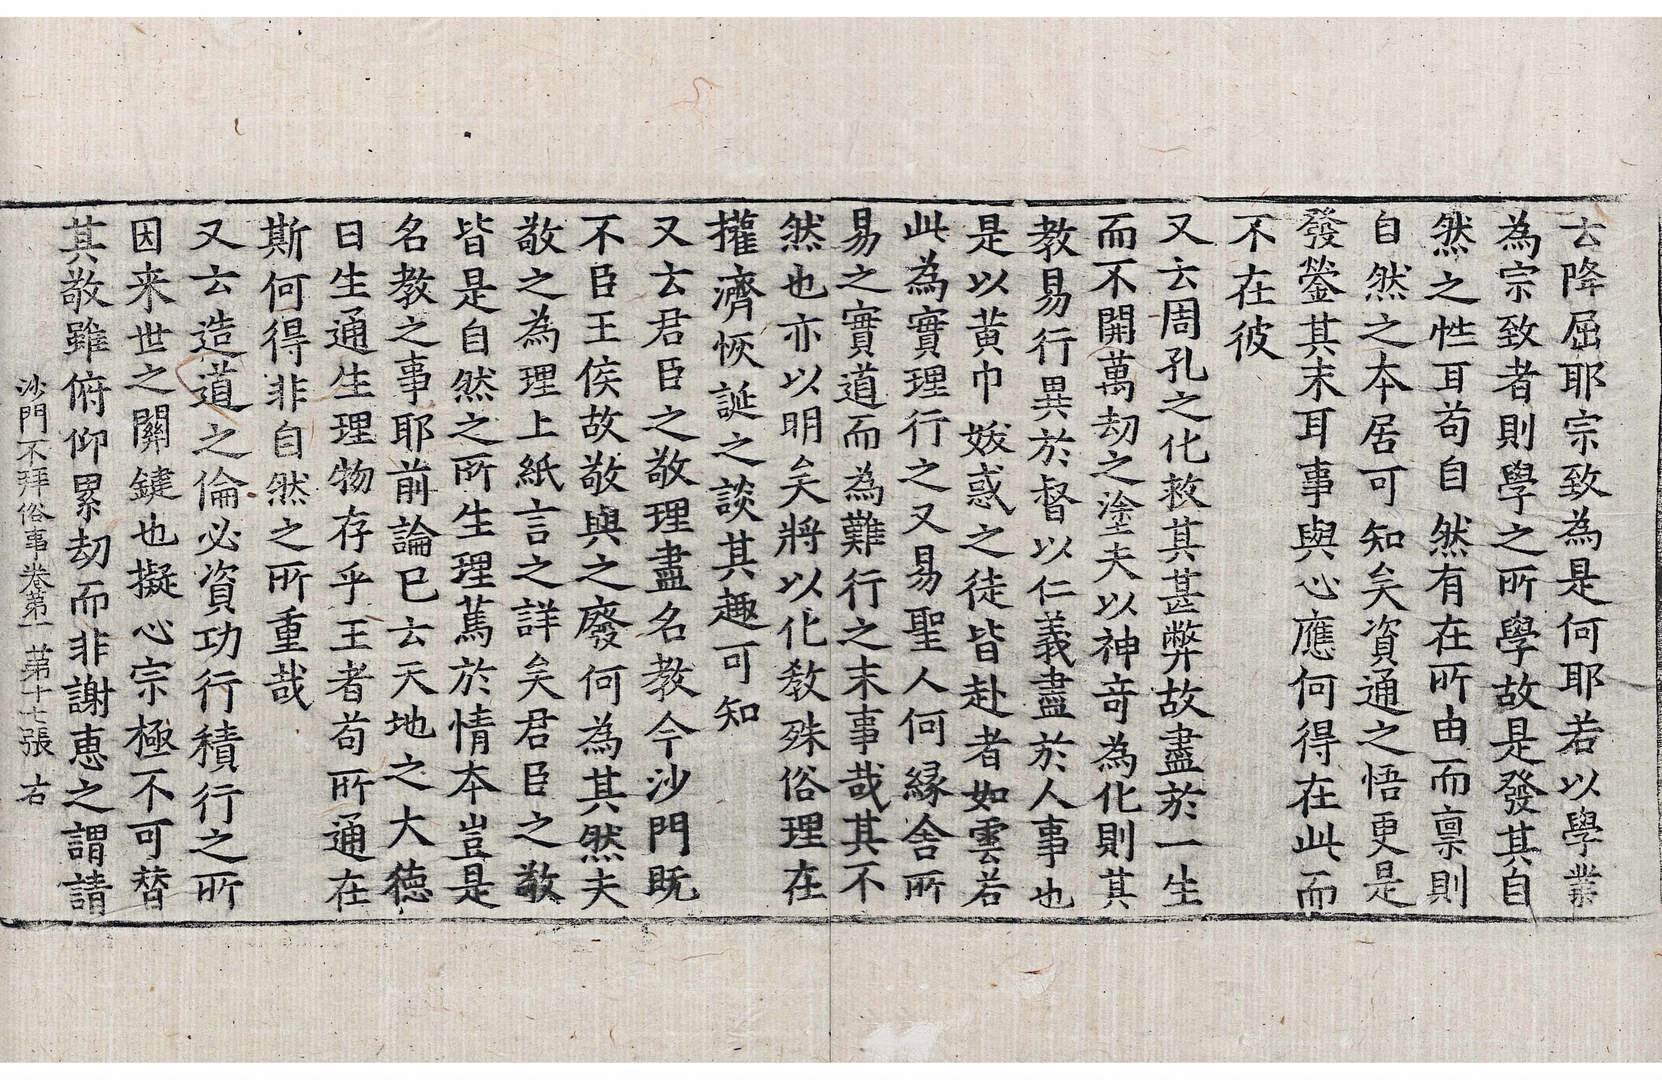 去降屈耶宗致為是何耶若以學業
為宗致者則學之所學故是發其自
然之性耳苟自然有在所由而稟則
自然之本居可知矣資通之悟更是
發鎣其末耳事與心應何得在此而
不在彼
又云周孔之化救其甚弊故盡於一生
而不開萬劫之塗夫以神竒為化則其
教易行異於督以仁義盡於人事也
是以黃巾妖惑之徒皆赴者如雲若
此為實理行之又易聖人何緣舍所
易之實道而為難行之末事哉其不
然也亦以明矣將以化教殊俗理在
擢濟恢誕之談其趣可知
又云君臣之敬理盡名教今沙門既
不臣王侯故敬與之廢何為其然夫
敬之為理上紙言之詳矣君臣之敬
皆是自然之所生理篤於情本豈是
名教之事耶前論巳云天地之大德
曰生通生理物存乎王者苟所通在
斯何得非自然之所重哉
又云造道之倫必資功行積行之所
因来世之關鍵也擬心宗極不可替
其敬雖俯仰累劫而非謝恵之謂請
沙門不拜俗事卷第一 第十七張 右